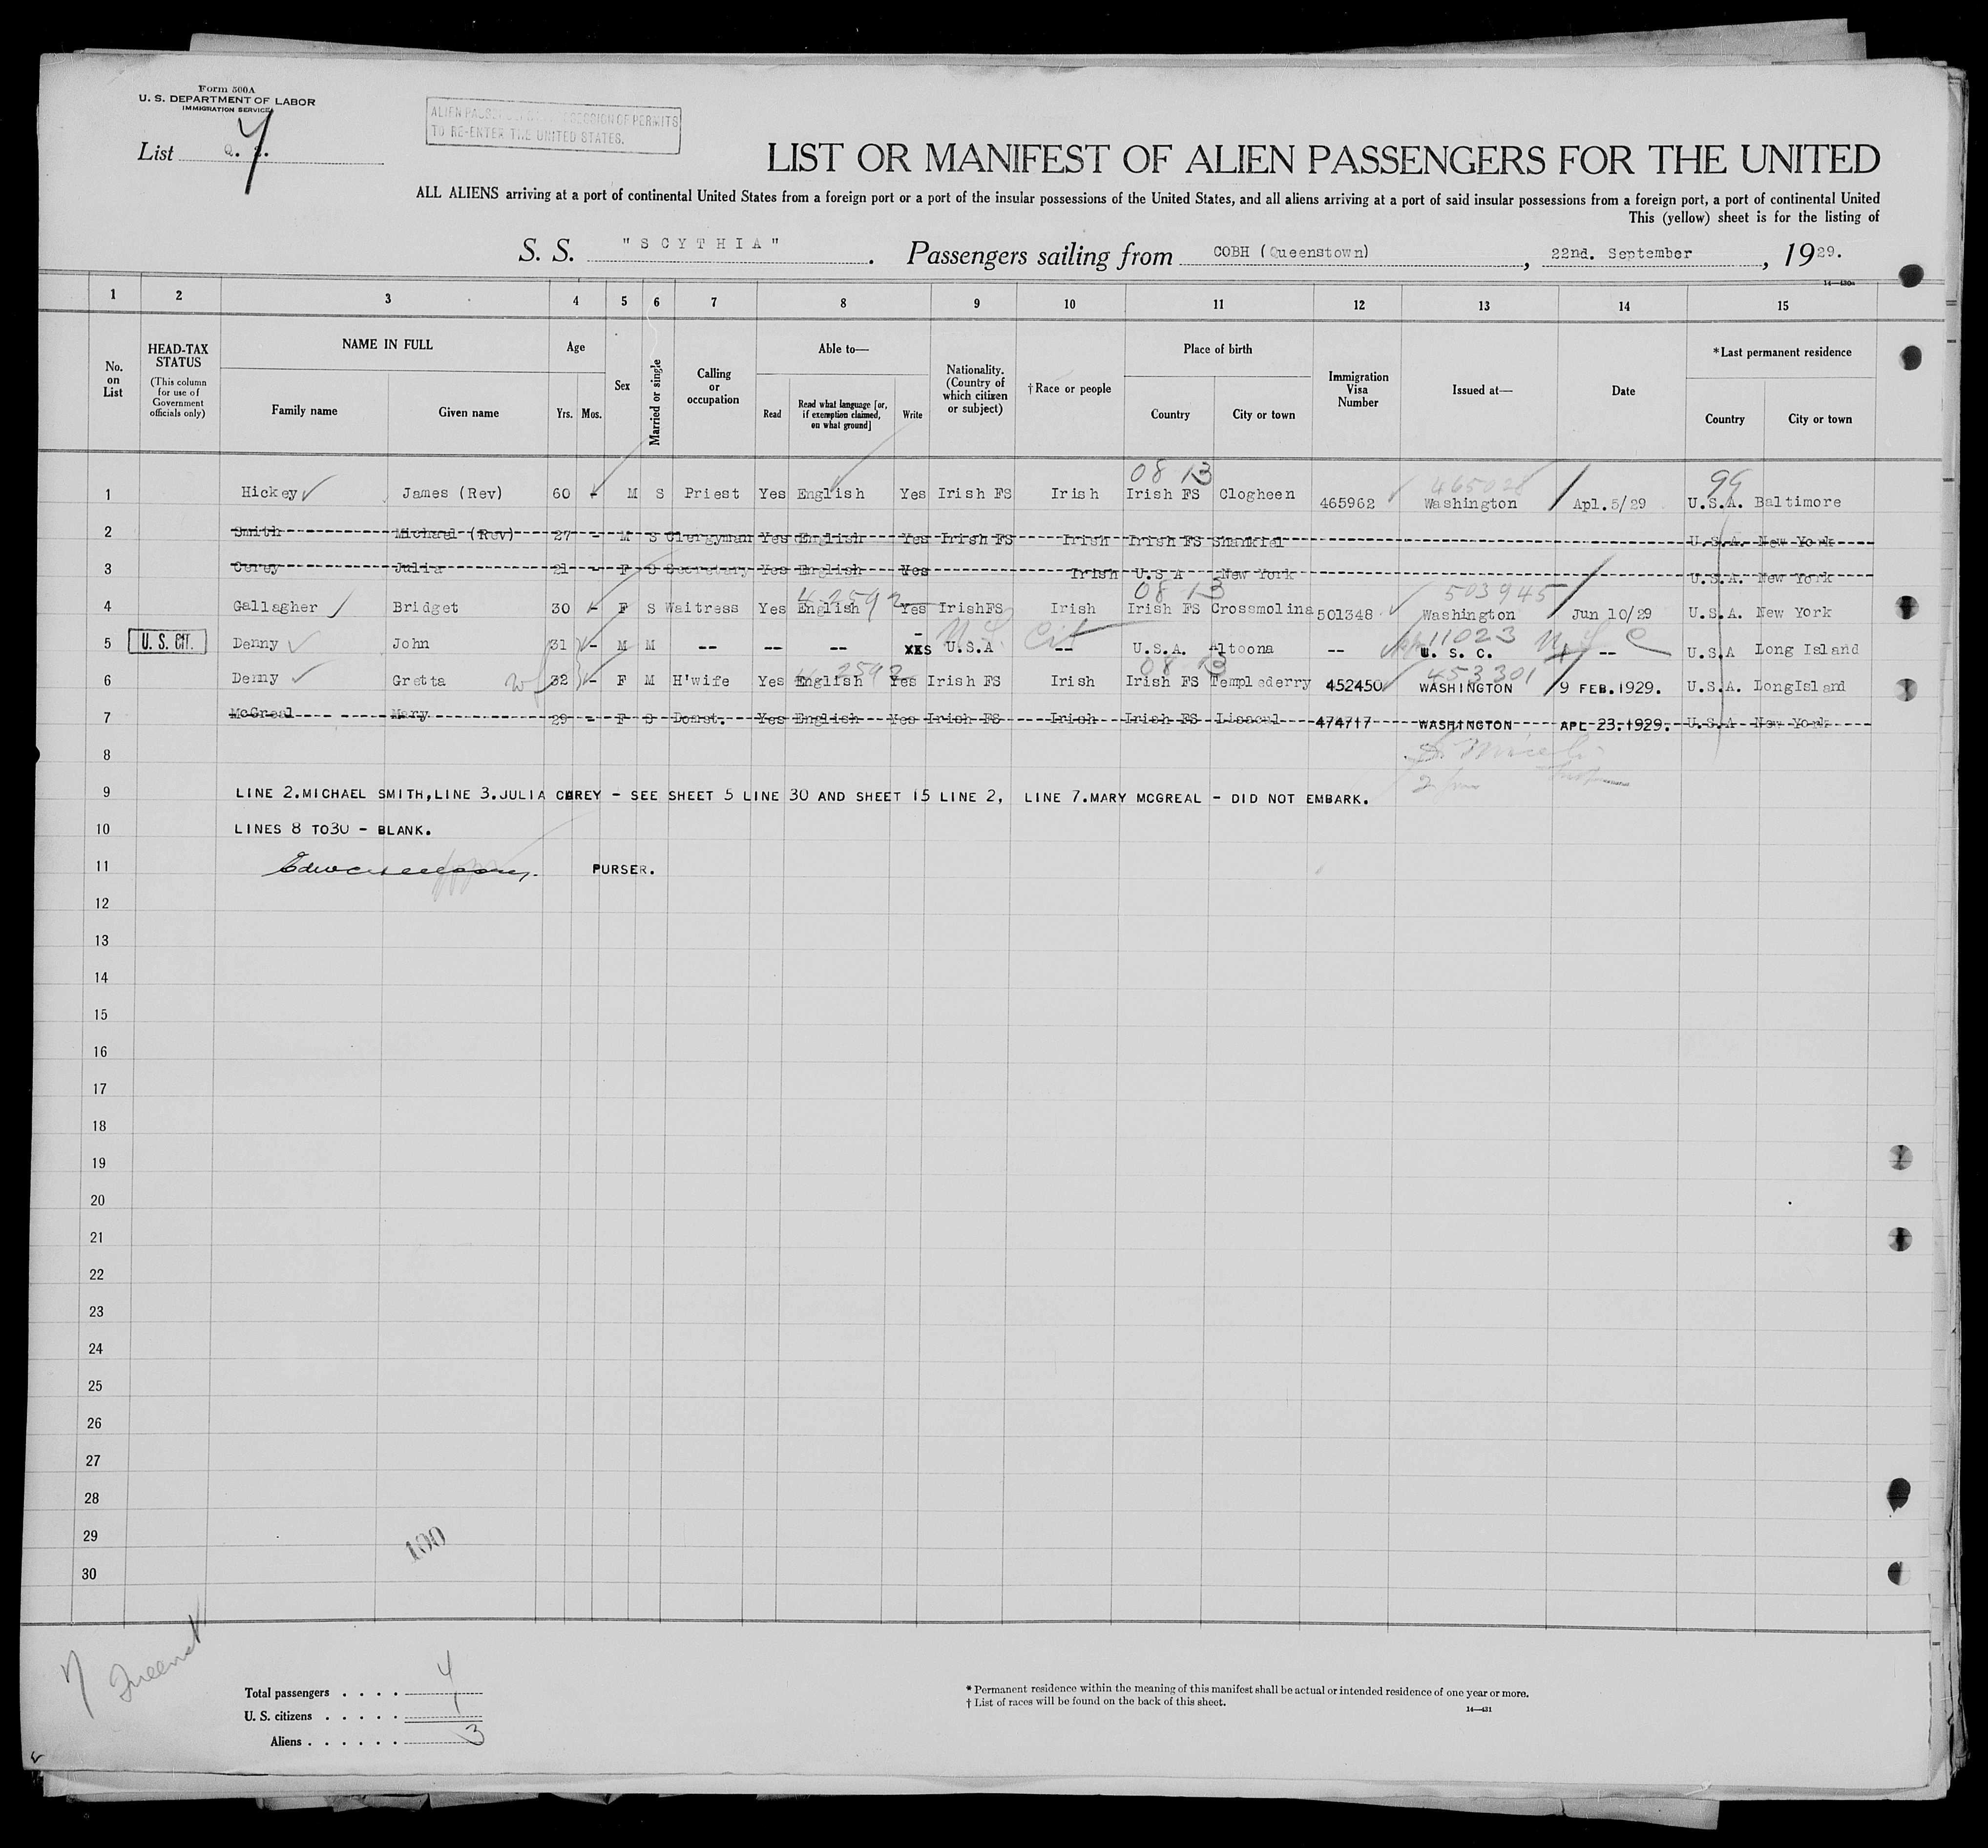 Form 500A
U. S. DEPARTMENT OF LABOR
IMMIGRATION SERVICE
List 7
ALIEN PASSENGERS IN POSSESSION OF PERMITS
TO RE-ENTER THE UNITED STATES.
LIST OR MANIFEST OF ALIEN PASSENGERS FOR THE UNITED
ALL ALIENS arriving at a port of continental United States from a foreign port or a port of the insular possessions of the United States, and all aliens arriving at a port of said insular possessions from a foreign port, a port of continental United
This (yellow) sheet is for the listing of
S. S. "SCYTHIA". Passengers sailing from COBH (Queenstown), 22nd. September, 1929.
14—430a
1 2 3 4 5 6 7 8 9 10 11 12 13 14 15
No. on List
HEAD-TAX STATUS (This column for use of Government officials only)
NAME IN FULL
Family name Given name
Age
Yrs. Mos.
Sex
Married or single
Calling or occupation
Able to—
Read Read what language [or, if exemption claimed, on what ground] Write
Nationality. (Country of which citizen or subject)
†Race or people
Place of birth
Country City or town
Immigration Visa Number
Issued at—
Date
*Last permanent residence
Country City or town
08 13 465028 99
1 Hickey James (Rev) 60 - M S Priest Yes English Yes Irish FS Irish Irish FS Clogheen 465962 Washington Apl.5/29 U.S.A. Baltimore
2 Smith Michael (Rev) 27 - M S Clergyman Yes English Yes Irish FS Irish Irish FS U.S.A. New York
3 Julia 21 - F S Secretary Yes English Yes Irish U.S A New York U.S.A. New York
4-2592 08 13 503945
4 Gallagher Bridget 30 - F S Waitress Yes English Yes IrishFS Irish Irish FS Crossmolina 501348 Washington Jun 10/29 U.S.A. New York
U.S. Cit 11023 U S C
5 U. S. CIT. Denny John 31 - M M -- -- -- XXS U.S.A -- U.S.A. Altoona -- U. S. C. -- U.S.A Long Island
4-2592 08 13 453301
6 Denny Gretta 32 - F M H'wife Yes English Yes Irish FS Irish Irish FS Templederry 452450 WASHINGTON 9 FEB.1929. U.S.A. LongIsland
7 McGreal Mary 29 - F S Domst. Yes English Yes Irish FS Irish Irish FS Lisacul 474717 WASHINGTON APL 23.1929. U.S.A New York
8
9 LINE 2.MICHAEL SMITH,LINE 3.JULIA CAREY - SEE SHEET 5 LINE 30 AND SHEET 15 LINE 2, LINE 7.MARY MCGREAL - DID NOT EMBARK.
10 LINES 8 TO30 - BLANK.
11 PURSER.
12
13
14
15
16
17
18
19
20
21
22
23
24
25
26
27
28
29
100
30
7 Queenst
Total passengers . . . . 4
U. S. citizens . . . . . 1
Aliens . . . . . . 3
* Permanent residence within the meaning of this manifest shall be actual or intended residence of one year or more.
† List of races will be found on the back of this sheet.
14—431